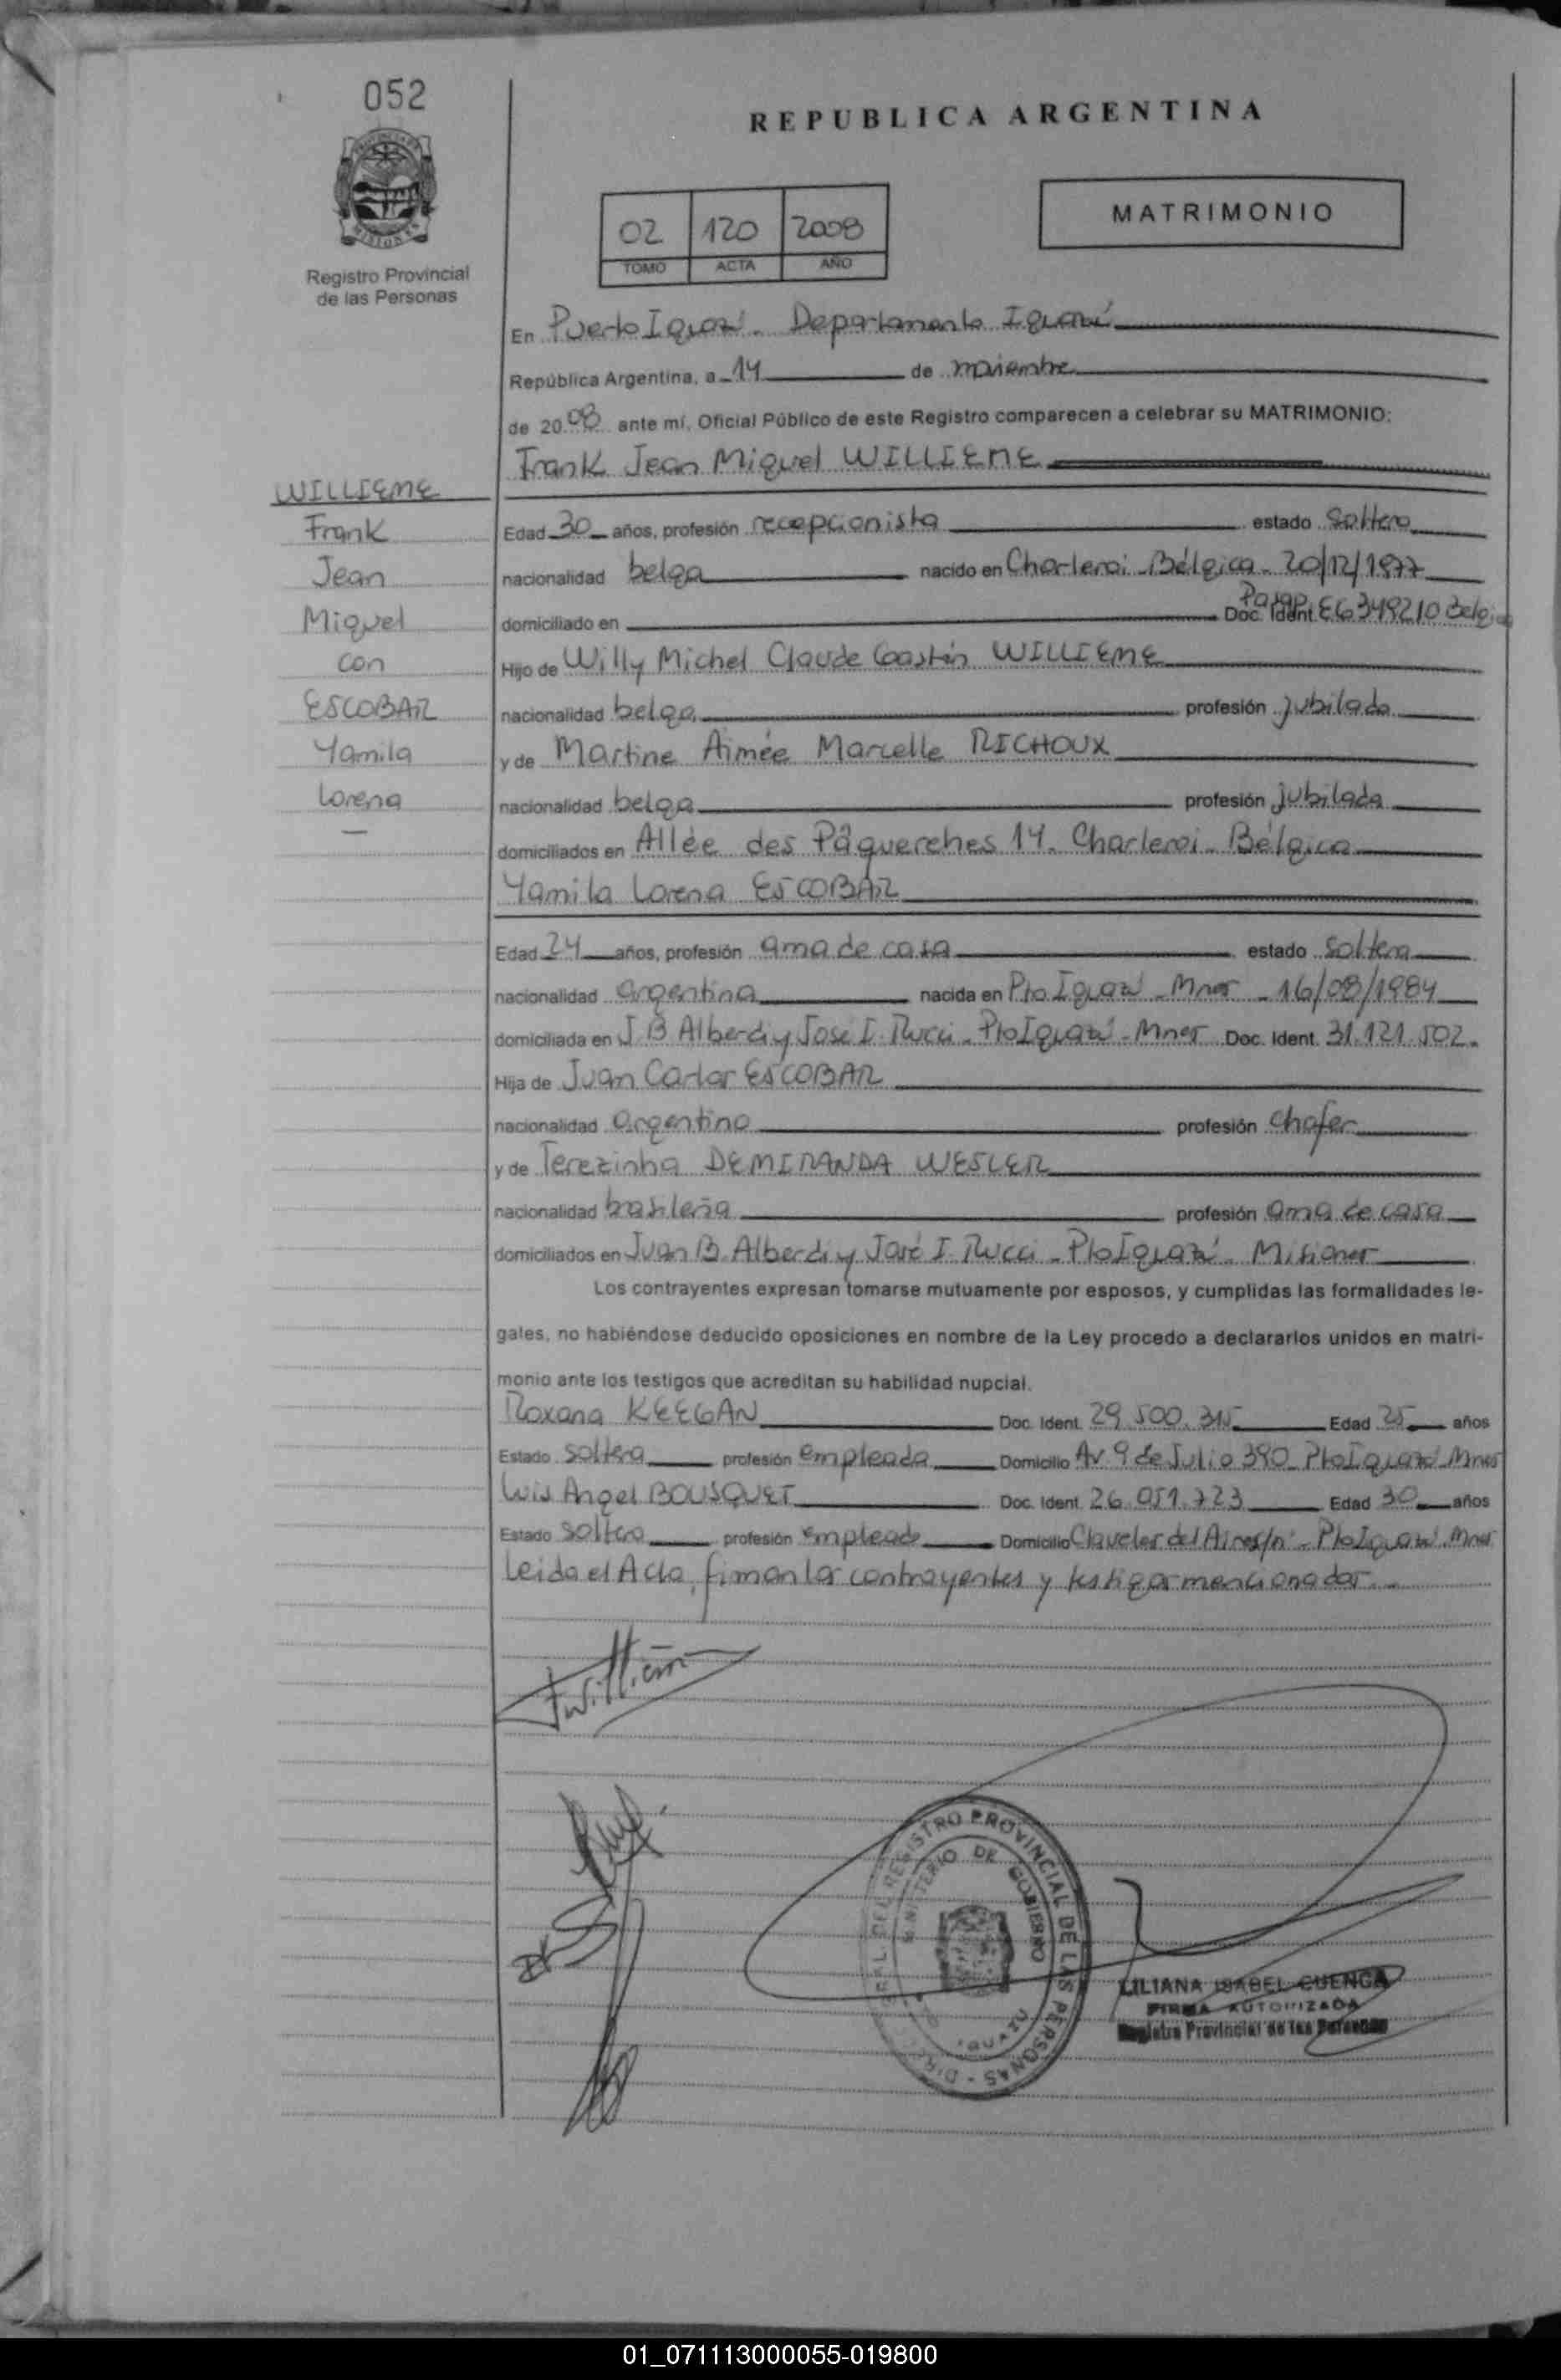 052
REPUBLICA ARGENTINA
MISIONES
Registro Provincial
de las Personas
02 120 2008
TOMO ACTA AÑO
MATRIMONIO
En Puerto Iguazú - Departamento Iguazú
República Argentina, a 14 de noviembre
de 2008 ante mí, Oficial Público de este Registro comparecen a celebrar su MATRIMONIO:
Frank Jean Miguel WILLIEME
WILLIEME
Frank
Jean
Miguel
con
ESCOBAR
Yamila
Lorena
Edad 30 años, profesión recepcionista estado soltero
nacionalidad belga nacido en Charleroi - Bélgica - 20/12/1977
domiciliado en Doc. Ident. Pasap. EG349210 Belgica
Hijo de Willy Michel Claude Gastón WILLIEME
nacionalidad belga profesión jubilado
y de Martine Aimée Marcelle RICHOUX
nacionalidad belga profesión jubilada
domiciliados en Allée des Pâquerehes 14. Charleroi - Bélgica
Yamila Lorena ESCOBAR
Edad 24 años, profesión ama de casa estado soltera
nacionalidad argentina nacida en Pto Iguazú - Mnes - 16/08/1984
domiciliada en J B Alberdi y José I. Rucci - Pto Iguazú - Mnes Doc. Ident. 31.121.502.
Hija de Juan Carlos ESCOBAR
nacionalidad argentino profesión chofer
y de Terezinha DEMIRANDA WESLER
nacionalidad brasileña profesión ama de casa
domiciliados en Juan B. Alberdi y José I. Rucci - Pto Iguazú - Misiones
Los contrayentes expresan tomarse mutuamente por esposos, y cumplidas las formalidades le-
gales, no habiéndose deducido oposiciones en nombre de la Ley procedo a declararlos unidos en matri-
monio ante los testigos que acreditan su habilidad nupcial.
Roxana KEEGAN Doc. Ident. 29.500.315 Edad 25 años
Estado soltera profesión empleada Domicilio Av. 9 de Julio 390 - Pto Iguazú Mnes
Luis Angel BOUSQUET Doc. Ident. 26.051.723 Edad 30 años
Estado soltero profesión empleado Domicilio Claveles del Aire s/n - Pto Iguazú. Mnes
Leida el Acta, firman los contrayentes y testigos mencionados.
REGISTRO PROVINCIAL DE LAS PERSONAS
MINISTERIO DE GOBIERNO
IGUAZU
LILIANA ISABEL CUENCA
FIRMA AUTORIZADA
Registro Provincial de las Personas
01_071113000055-019800